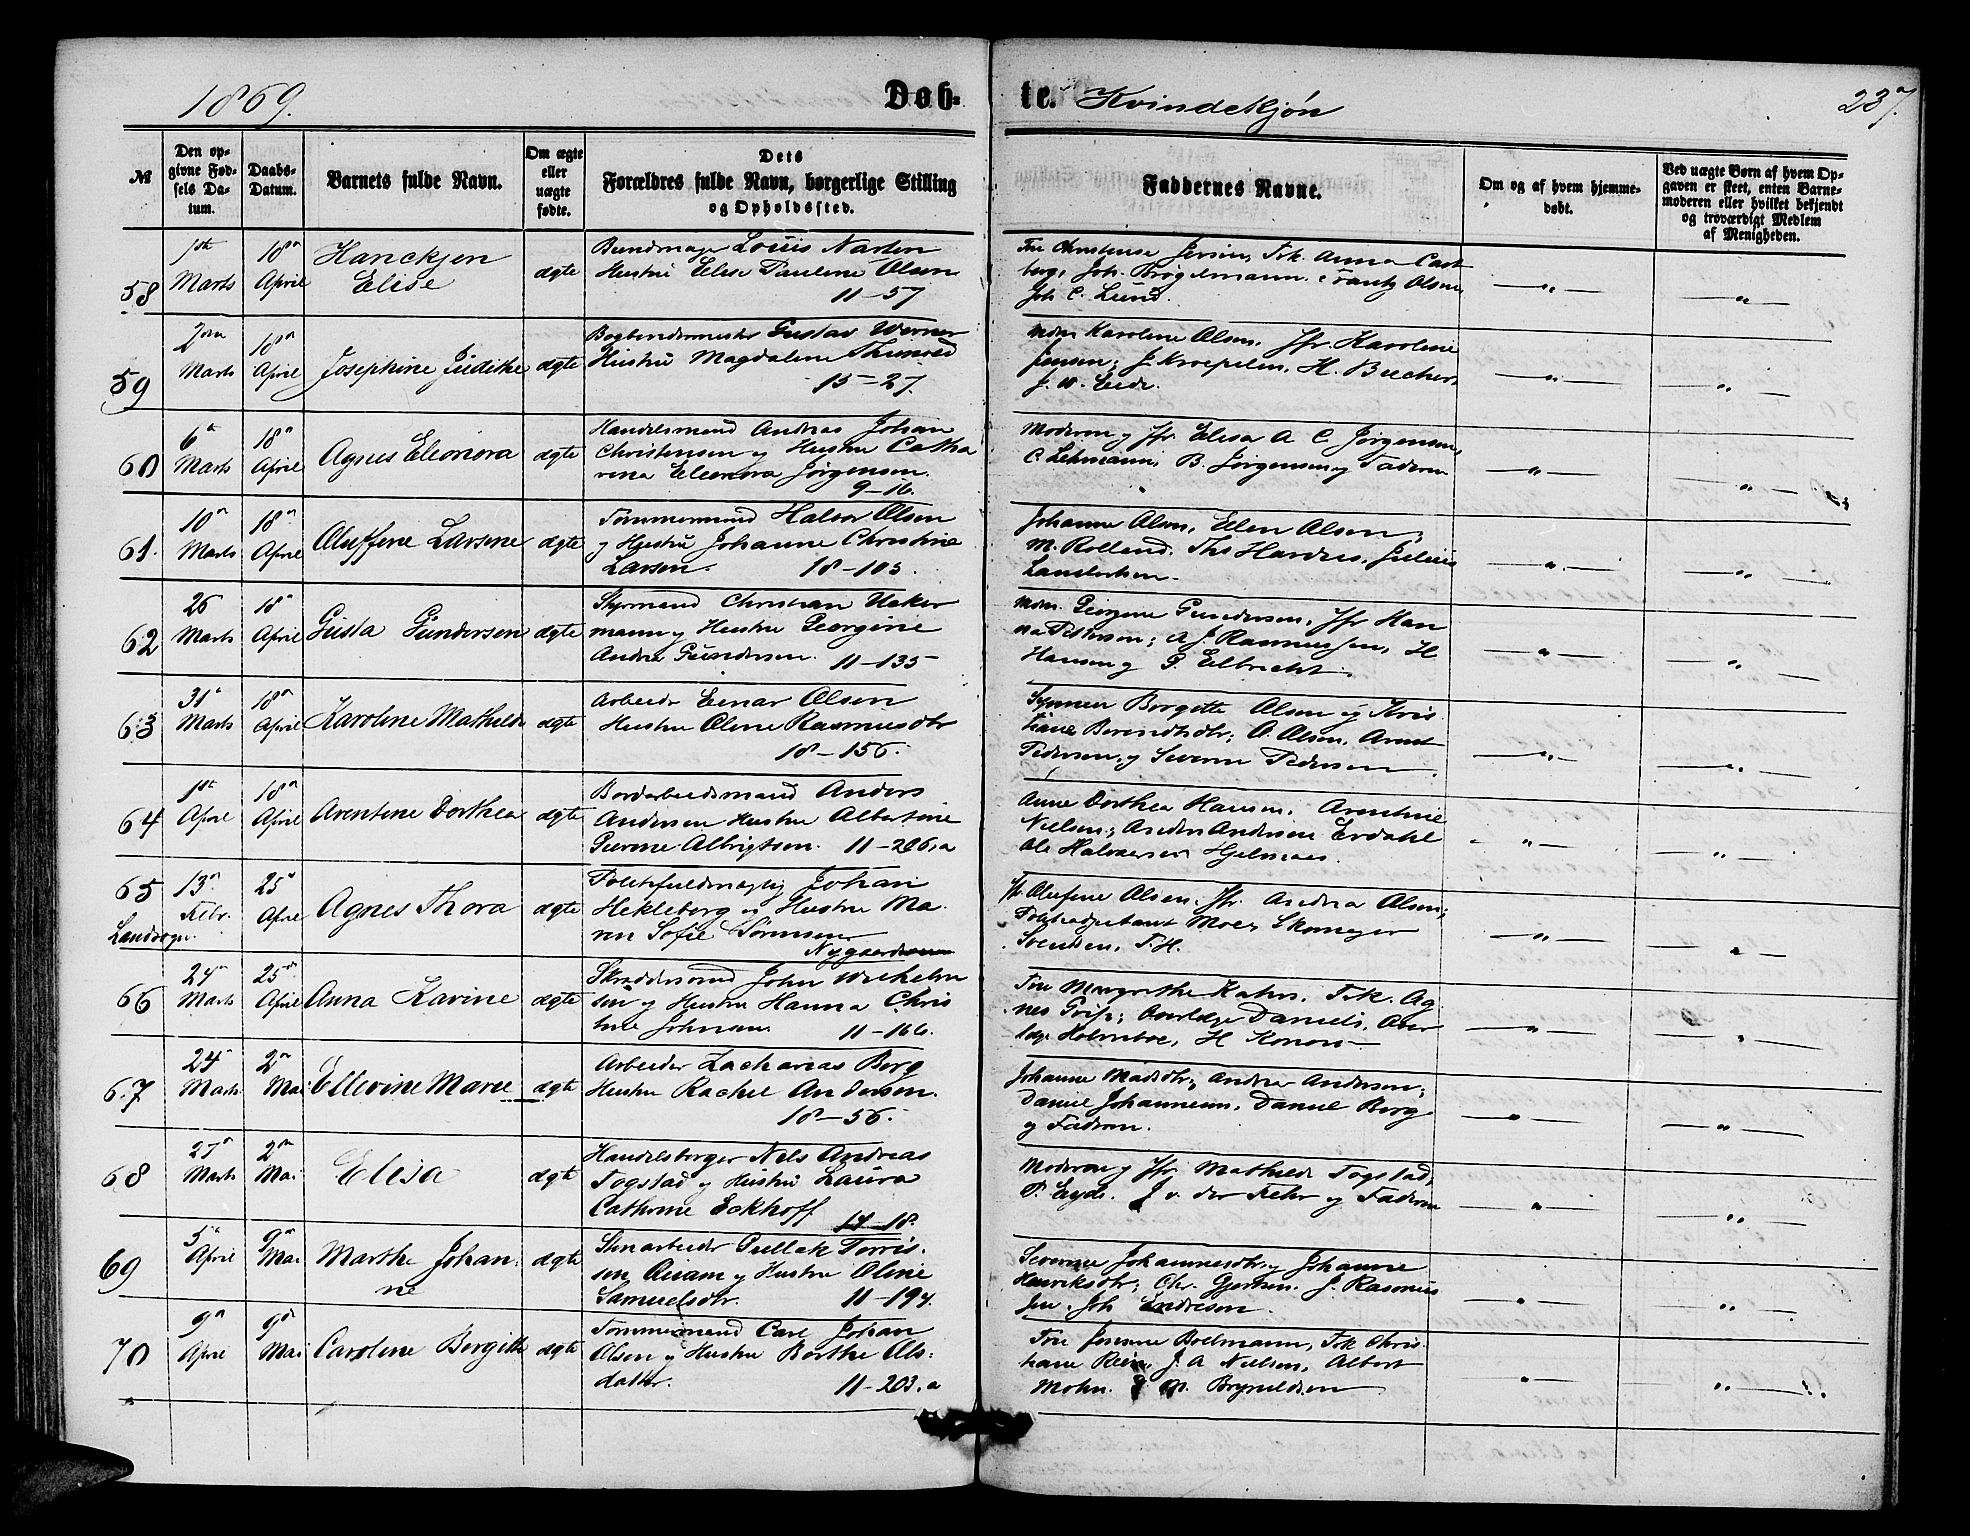 1869.
Døb-
te. Kvindekjøn
237.
№
Den opgivne Fødsels Datum.
Daabs-Datum.
Barnets fulde Navn.
Om ægte eller uægte fødte.
Dets Forældres fulde Navn, borgerlige Stilling og Opholdssted.
Faddernes Navne.
Om og af hvem hjemmedøbt.
Ved uægte Børn af hvem Opgaven er skeet, enten Barnemoderen eller hvilket bekjendt og troværdigt Medlem af Menigheden.
58 1ste Marts 18de April Hanckjen Elise ægte
Louis Narten
Hustru Elise Pauline Olsen
11-57
Fru Christense Jersin, Frk. Anna Cast
berg, Joh. Brøgelmann, Frantz Olsen,
Joh C. Lund.
59 2den Marts 18de April Josephine Judithe ægte
Bogbindermester Gustav Werner
Hustru Magdalene
15-27.
Mdm Karoline Olsen, Jfr. Karoline
Jensen; J. Kroepelin, H. Beecher,
J. W. Eide.
60 6te Marts 18de April Agnes Eleonora ægte
Handelsmand Andreas Johan
Christensen og Hustru Catha
rina Eleonora Jørgensen.
9-16.
Moderen og Jfr. Elisa A C. Jørgensen,
C. Lehmann, B. Jørgensen og Faderen
61. 10de Marts 18de April Oluffine Larsine ægte
Tømmermand Halvor Olsen
og Hustru Johanne Christine
Larsen. 18-103.
Johanne Olsen, Ellen Olsen,
M. Rolland, Ths Hardes, Julius
62 26 Marts 18de April Gusta Gundersen ægte
Styrmand Christian Ucker
mann og Hustru Georgine
Andrea Gundersen. 11-135
Mdm. Georgine Gundersen, Jfr Han
na Pettersen; A J. Rasmussen, H
Hansen og P. Eilbrecht.
63 31te Marts 18de April Karoline Mathilde ægte
Arbeider Einar Olsen
Hustru Oline Rasmusdtr
18-156.
Synneva Borgitte Olsen og Kris
tiane Berendtsdtr; O. Olsen, Arent
Pedersen og Severin Pedersen.
64 1ste April 18de April Arentine Dorthea ægte
Bordarbeidsmand Anders
Andersen Hustru Albertine
Gurine Albrigtsen. 11-206,a
Anne Dorthea Hansen, Arentine
Nielsen; Anders Andersen Erdahl
Ole Halvorsen Hjelmaas.
65 Landsogn. 13de Febr. 25de April Agnes Thora ægte
Politifuldmægtig Johan
Hekleberg og Hustru Ma-
ren Sofie Sørensen
Jfr Olufine Olsen, Jfr. Andrea Olsen;
Politiadjutant Moe,
Svendsen, F. H.
66 24de Marts 25de April Anna Kavine ægte
Skræddersvend John Wilhelm
sen og Hustru Hanna Chris
tine Johnsen. 11-166.
Fru Margrethe Kahrs, Frk. Ag-
nes Griff; Overlæge Daniels, Over
læge Holmboe, H Konow
67 24de Marts 2den Mai Ellevine Marie ægte
Arbeider Zacharias Berg
Hustru Rachel Andersen.
18-56.
Johanne Madsdtr, Andrea Andersen;
Daniel Johannesen, Daniel Berg
og Faderen.
68 27de Marts 2den Mai Elisa ægte
Handelsborger Nils Andreas
Fogstad og Hustru Laura
Cathrine Eckhoff 14-18.
Moderen og Jfr. Mathilde Fogstad,
P. Eyde, J. v. der Fehr og Faderen
69 5te April 9de Mai Marthe Johanne ægte
Stenarbeider Pullek Torris-
sen Qvam og Hustru Oline
Samuelsdtr. 11-194.
Severine Johannesdtr og Johanne
Henriksdtr; Chr. Gjertsen, J. Rasmus
sen, Joh Endresen.
70 9de April 9de Mai Caroline Bergitte ægte
Tømmermand Carl Johan
Olsen og Hustru Berthe Ols-
datter. 11-203,a
Fru Josefine Bollmann, Frk Chris-
tiane Rein, J. A Nielsen, Albert
Mohn, M. Brynildsen